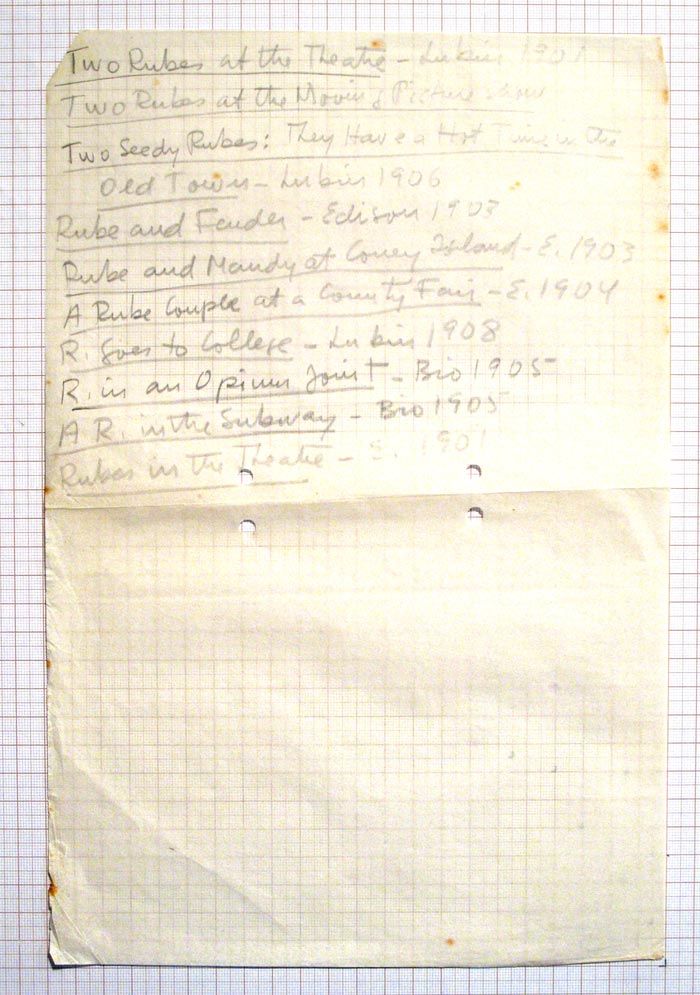 Two Rubes at the Theatre – Lubin 1901
Two Rubes at the Moving Picture Show
Two Seedy Rubes: They Have a Hot Time in the
Old Town – Lubin 1906
Rube and Fender – Edison 1903
Rube and Mandy at Coney Island – E. 1903
A Rube Couple at a County Fair – E. 1904
R. Goes to College – Lubin 1908
R. in an Opium Joint – Bio 1905
A R. in the Subway – Bio 1905
Rubes in the Theatre – E. 1901